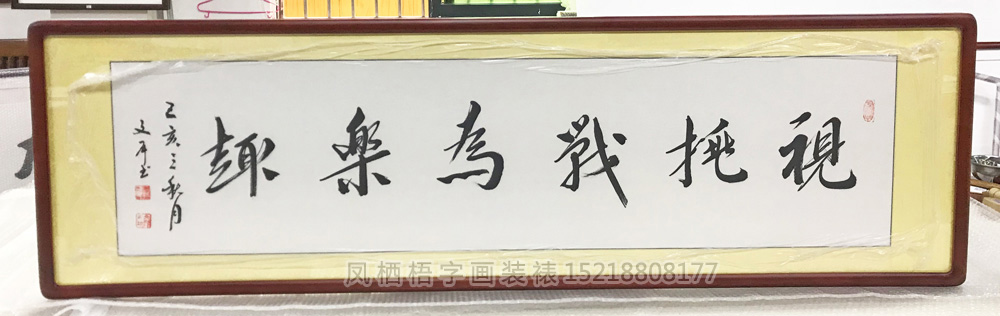 視挑戰為樂趣
己亥三秋月
文軍书
凤栖梧字画装裱15218808177